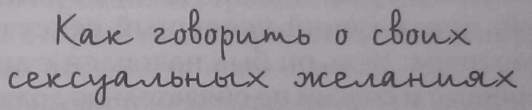 Как говорить о своих
сексуальных желаниях